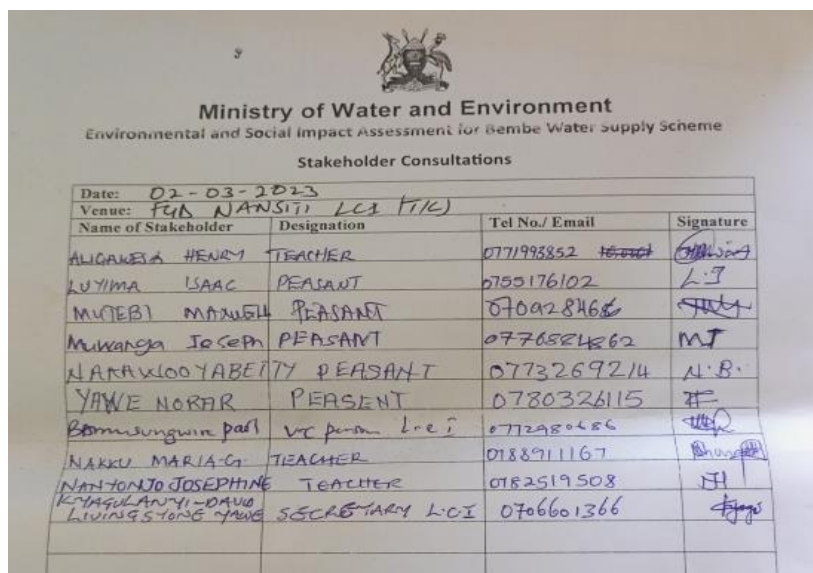 Ministry of Water and Environment
Environmental and Social Impact Assessment for Bembe Water Supply Scheme
Stakeholder Consultations
Date: 02-03-2023
Venue: NANSITI LC1 (T/C)
Name of Stakeholder Designation Tel No./ Email Signature
HENRY TEACHER 0771993852
LUYIMA ISAAC PEASANT 0755176102 L.I
MUTEBI PEASANT
Muwanga Joseph PEASANT 0776884862 MJ
PEASANT 0773269214 N.B.
YAWE NORAR PEASENT 0780326115
paul L.C I 0772980686
NAKKU MARIA-G. TEACHER 0788911167
NANTONJO JOSEPHINE TEACHER 0782519508
KYAGULANYI-DAVID
LIVINGSTONE YAWE SECRETARY L.C.I 0706601366